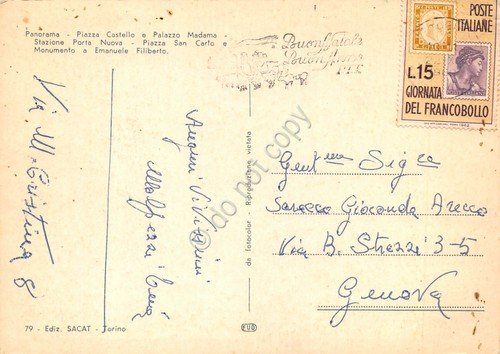 Panorama - Piazza Castello e Palazzo Madama
Stazione Porta Nuova - Piazza San Carlo e
Monumento a Emanuele Filiberto.
Via M. Cristina 8
Auguri Vivissimi
79 - Ediz. SACAT - Torino
da fotocolor - Riproduzione vietata
FUO
Buon Natale
Buon Anno
POSTE
ITALIANE
L.15
GIORNATA
DEL FRANCOBOLLO
Gent.ma Sig.ra
Saracco Gioconda Arecco
Via B. Strozzi 3-5
Genova
do not copy